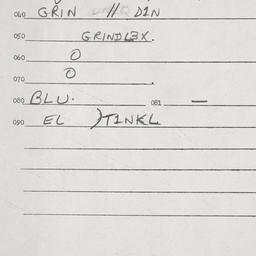 060 GRIN // D1N
050 GRINDL3X.
060 O
070 O
080 BLU. 081 —
090 EL )T1NKL